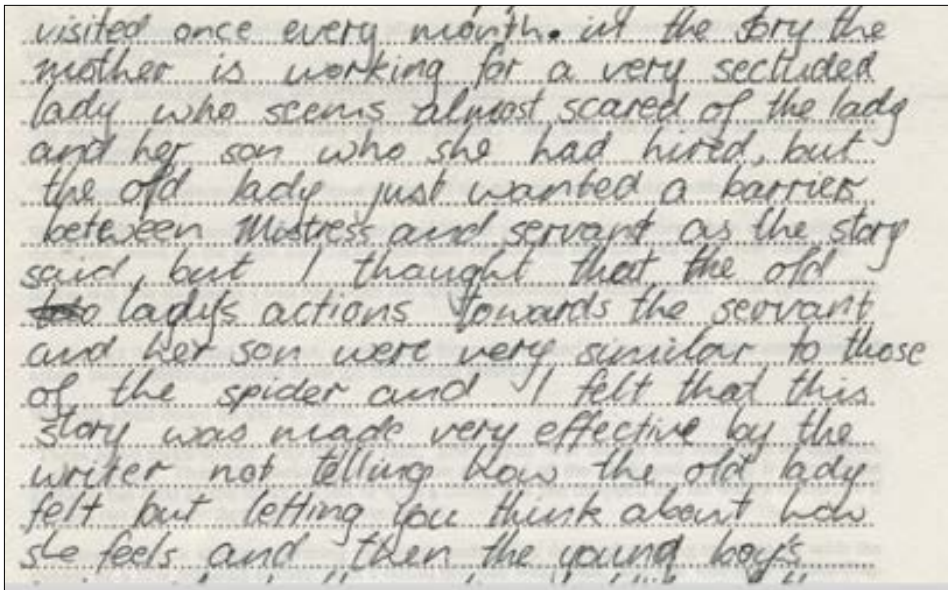 visited once every month. in the story the
mother is working for a very secluded
lady who seems almost scared of the lady
and her son who she had hired, but
the old lady just wanted a barrier
between Mistress and servant as the story
said, but I thought that the old
lady's actions towards the servant
and her son were very similar to those
of the spider and I felt that this
story was made very effective by the
writer not telling how the old lady
felt but letting you think about how
she feels and then the young boy's